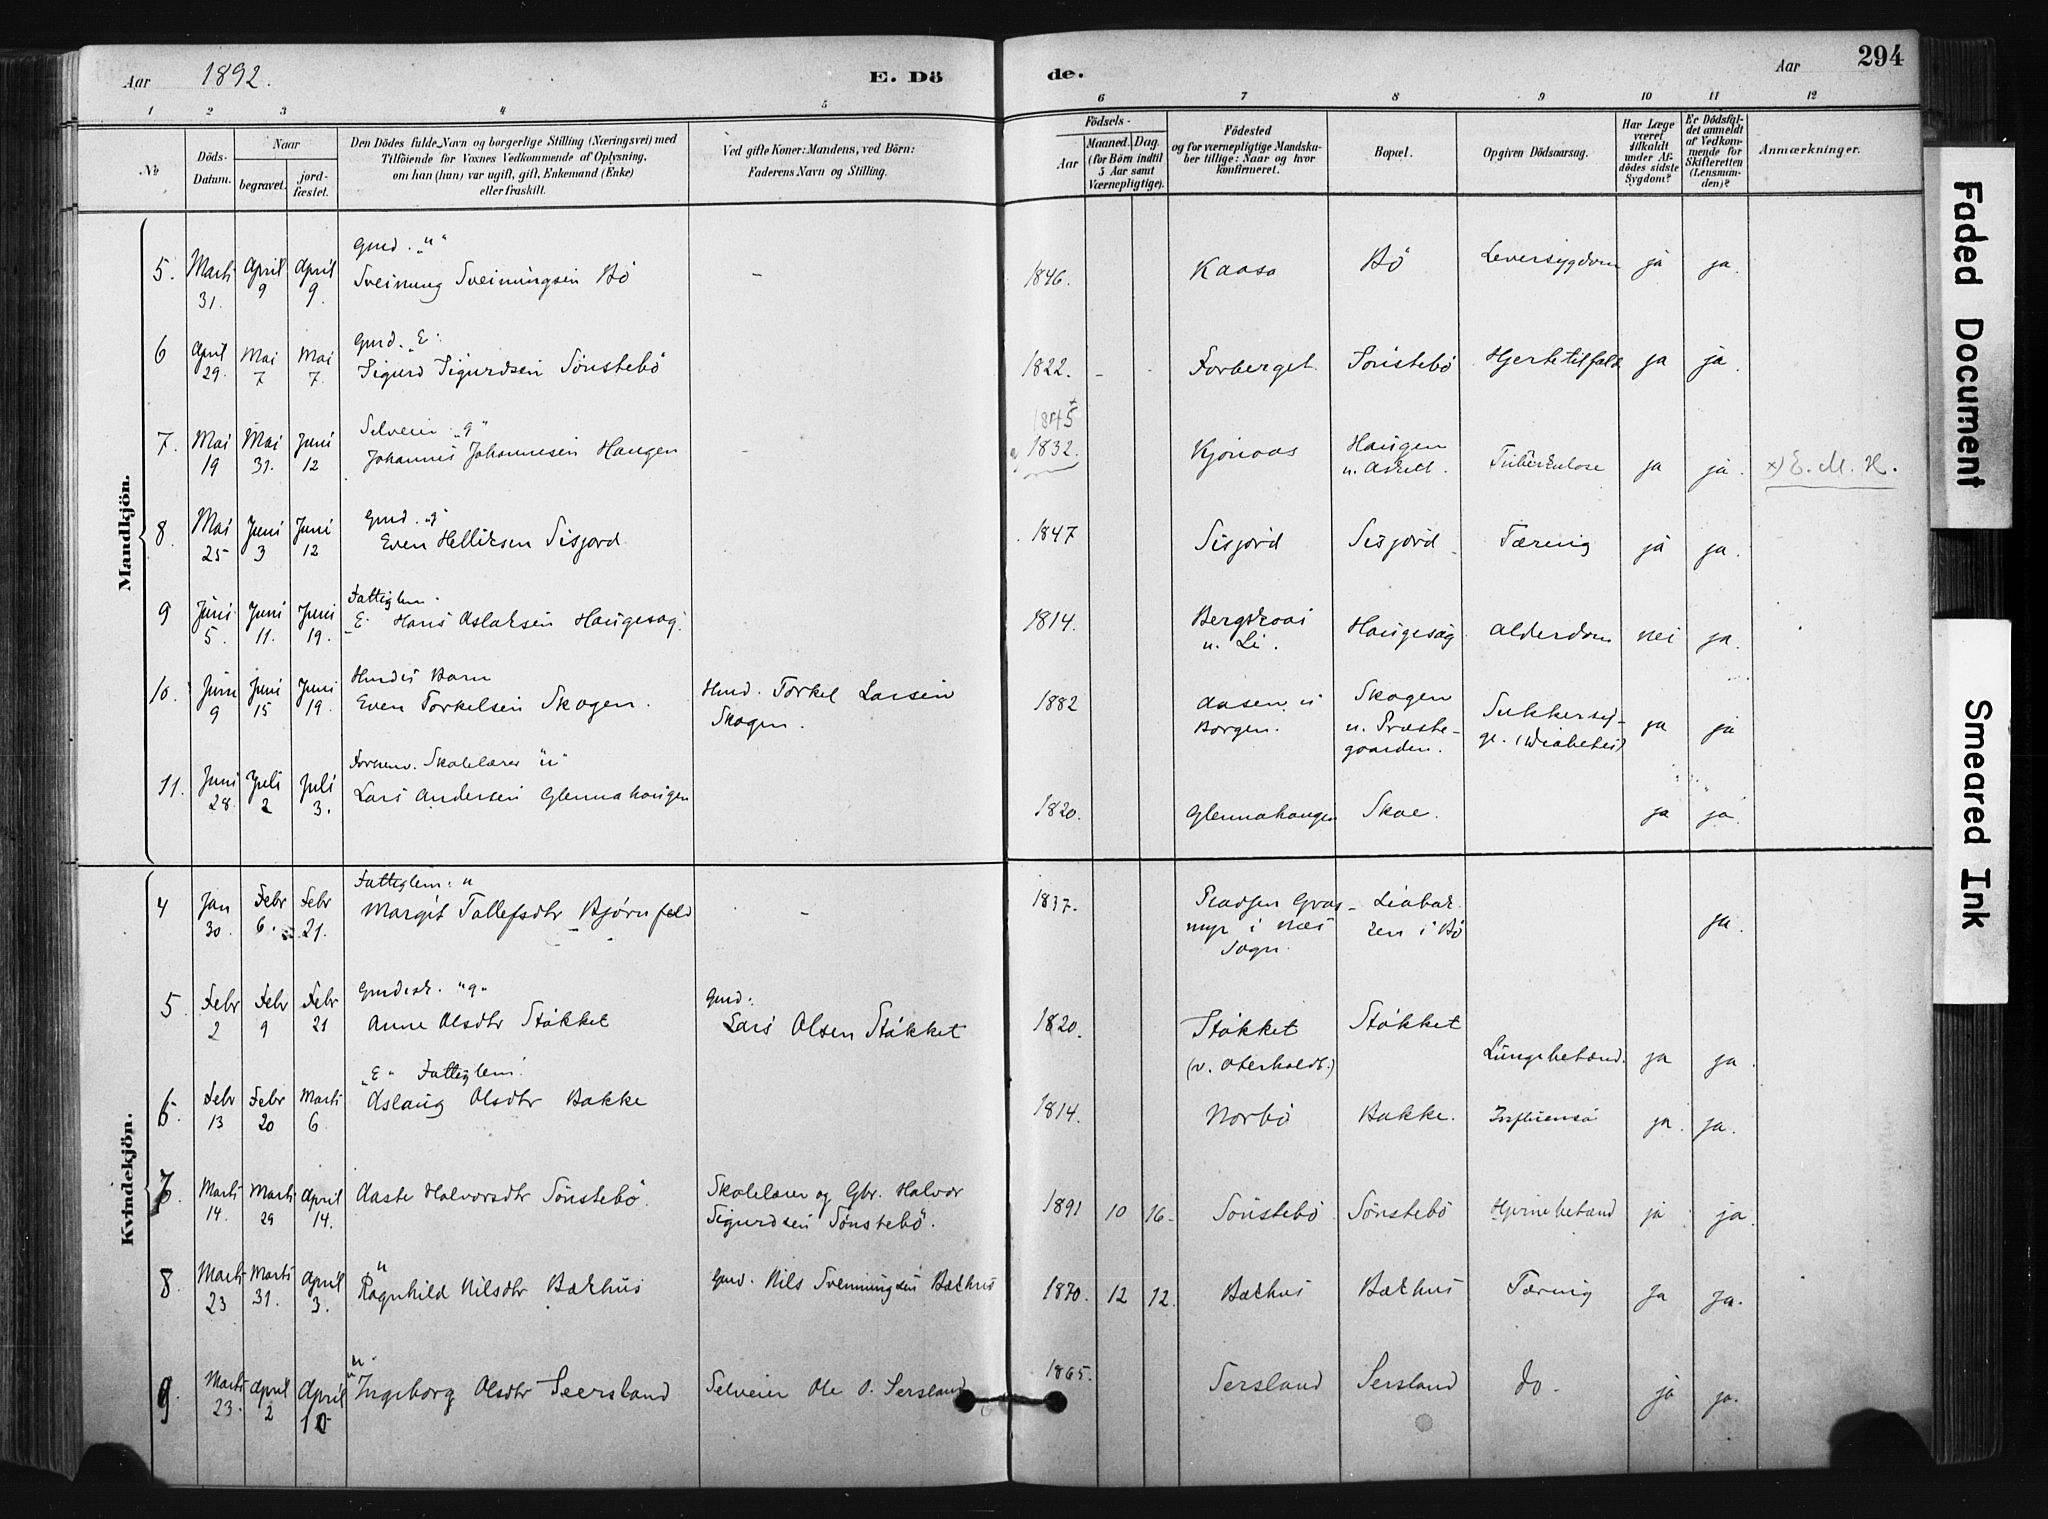 Aar 1892. E. Döde. Aar 294
1 2 3 4 5 6 7 8 9 10 11 12
№
Döds-Datum.
Naar
begravet.
jordfæstet.
Den Dödes fulde Navn og borgerlige Stilling (Næringsvei) med
Tilföiende for Voxnes Vedkommende af Oplysning,
om han (hun) var ugift, gift, Enkemand (Enke)
eller fraskilt.
Ved gifte Koner: Mandens, ved Börn:
Faderens Navn og Stilling.
Födsels-
Aar
Maaned. Dag.
(for Börn indtil
5 Aar samt
Værnepligtige).
Födested
og for værnepligtige Mandska-
ber tillige: Naar og hvor
konfirmeret.
Bopæl.
Opgiven Dödsaarsag.
Har Læge
været
tilkaldt
under Af-
dödes sidste
Sygdom?
Er Dödsfal-
det anmeldt
af Vedkom-
mende for
Skifteretten
(Lensman-
den)?
Anmærkninger.
Mandkjön.
Gmd. "u"
5. Marts 31. April 9 April 9. Sveinung Sveinungsen Bö - 1846. Kaasa Bö Leversygdom ja ja.
Gmd. "E"
6 April 29. Mai 7 Mai 7. Sigurd Sigurdsen Sönstebö 1822. - - Forberget. Sönstebö Hjertetilfald ja ja.
Selveier "g"
1845
7. Mai 19 Mai 31. Juni 12 Johannes Johannesen Haugen - 1832. Kjönaas Haugen Tuberkulose ja ja. x) E. M. H.
Gmd. "g"
8. Mai 25 Juni 3 Juni 12 Even Helliksen Sisjord 1847 Sisjord Sisjord Tæring ja ja.
Fattiglem.
9 Juni 5. Juni 11. Juni 19. "E" Hans Aslaksen Haugesag. 1814. Bergskaas
u. Li. Haugesag Alderdom nei ja.
Hmds Barn
10. Juni 9 Juni 15 Juni 19. Even Torkelsen Skogen. Hmd. Torkel Larsen
Skogen. 1882 Aasen u
Borgen. Skogen
u. Præste-
gaarden. Sukkersy-
ge. (Diabetes) ja ja
Forhenv. Skolelærer "u"
11. Juni 28. Juli 2 Juli 3. Lars Andersen Glennahaugen 1820. Glennahaugen Skoe. ja ja.
Kvindekjön.
Fattiglem: u
4 Jan 30. Febr 6. Febr 21. Margit Tollefsdtr Bjørnfeld - 1837. Pladsen Gras-
myr i Næs
Sogn. Liabak-
ken i Bö ja.
Gmdsk. "g" Gmd:
5. Febr 2 Febr 9 Febr 21 Anne Olsdtr Stökket Lars Olsen Stökket 1820. Stökket
(v. Oterholdt.) Stökket Lungebetænd. ja ja.
"E" Fattiglem.
6. Febr 13 Febr 20 Marts 6 Aslaug Olsdtr Bakke 1814. Norbö Bakke. Influensa ja. ja.
7. Marts 14. Marts 29 April 14. Aaste Halvorsdtr Sönstebö. Skolelærer og Gbr. Halvor
Sigurdsen Sönstebö. 1891 10 16. Sönstebö Sönstebö Hjernebetænd ja ja.
u
8. Marts 23 Marts 31. April 3. Ragnhild Nilsdtr Bækhus Gmd. Nils Svenningsen Bækhus 1870. 12 12. Bækhus Bækhus Tæring ja ja.
u.
9. Marts 23. April 2 April 10 Ingeborg Olsdtr Seersland Selveier Ole O. Sersland 1865. Sersland Sersland do. ja ja.
Faded Document
Smeared Ink